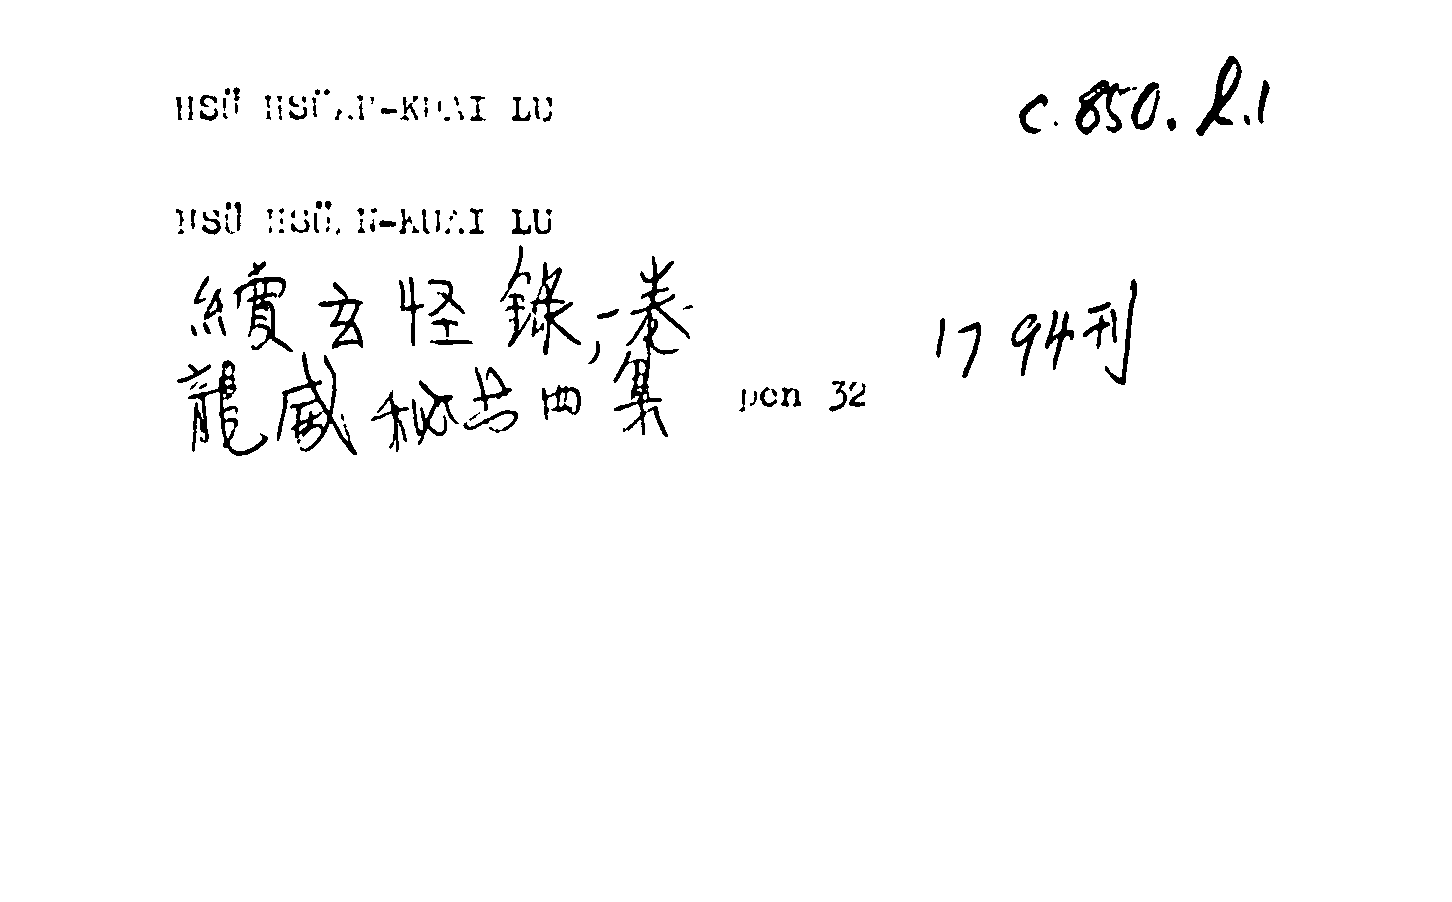 HSÜ HSÜAN-KUAI LU
C.850.l.1
HSÜ HSÜAN-KUAI LU
續玄怪錄,一卷
1794刊
龍威秘书四集 pen 32